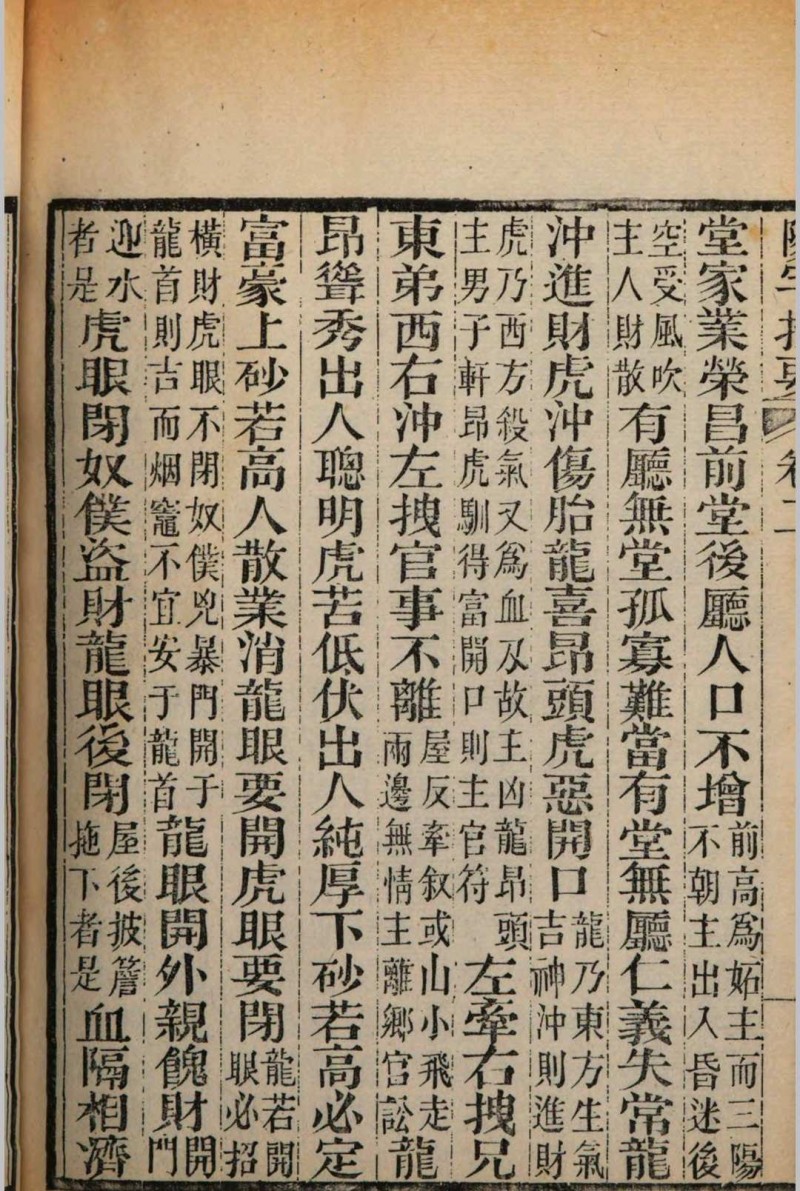 堂家業榮昌前堂後廳人口不增前高爲妬主而三陽不朝主出入昏迷後
空受風吹主人財散有廳無堂孤寡難當有堂無廳仁義失常龍
沖進財虎沖傷胎龍喜昂頭虎惡開口龍乃東方生氣吉神沖則進財
虎乃西方殺氣又爲血刄故主凶龍昂頭主男子軒昂虎馴得富開口則主官符左牽右拽兄
東弟西右沖左拽官事不離屋反牽敘或山小飛走兩邊無情主離鄉官訟龍
昂聳秀出人聰明虎若低伏出人純厚下砂若高必定
富豪上砂若高人散業消龍眼要開虎眼要閉龍若開眼必招
橫財虎眼不閉奴僕兇暴門開于龍首則吉而烟竈不宜安于龍首龍眼開外親餽財開門
迎水者是虎眼閉奴僕盜財龍眼後閉屋後披簷拖下者是血隔相濟